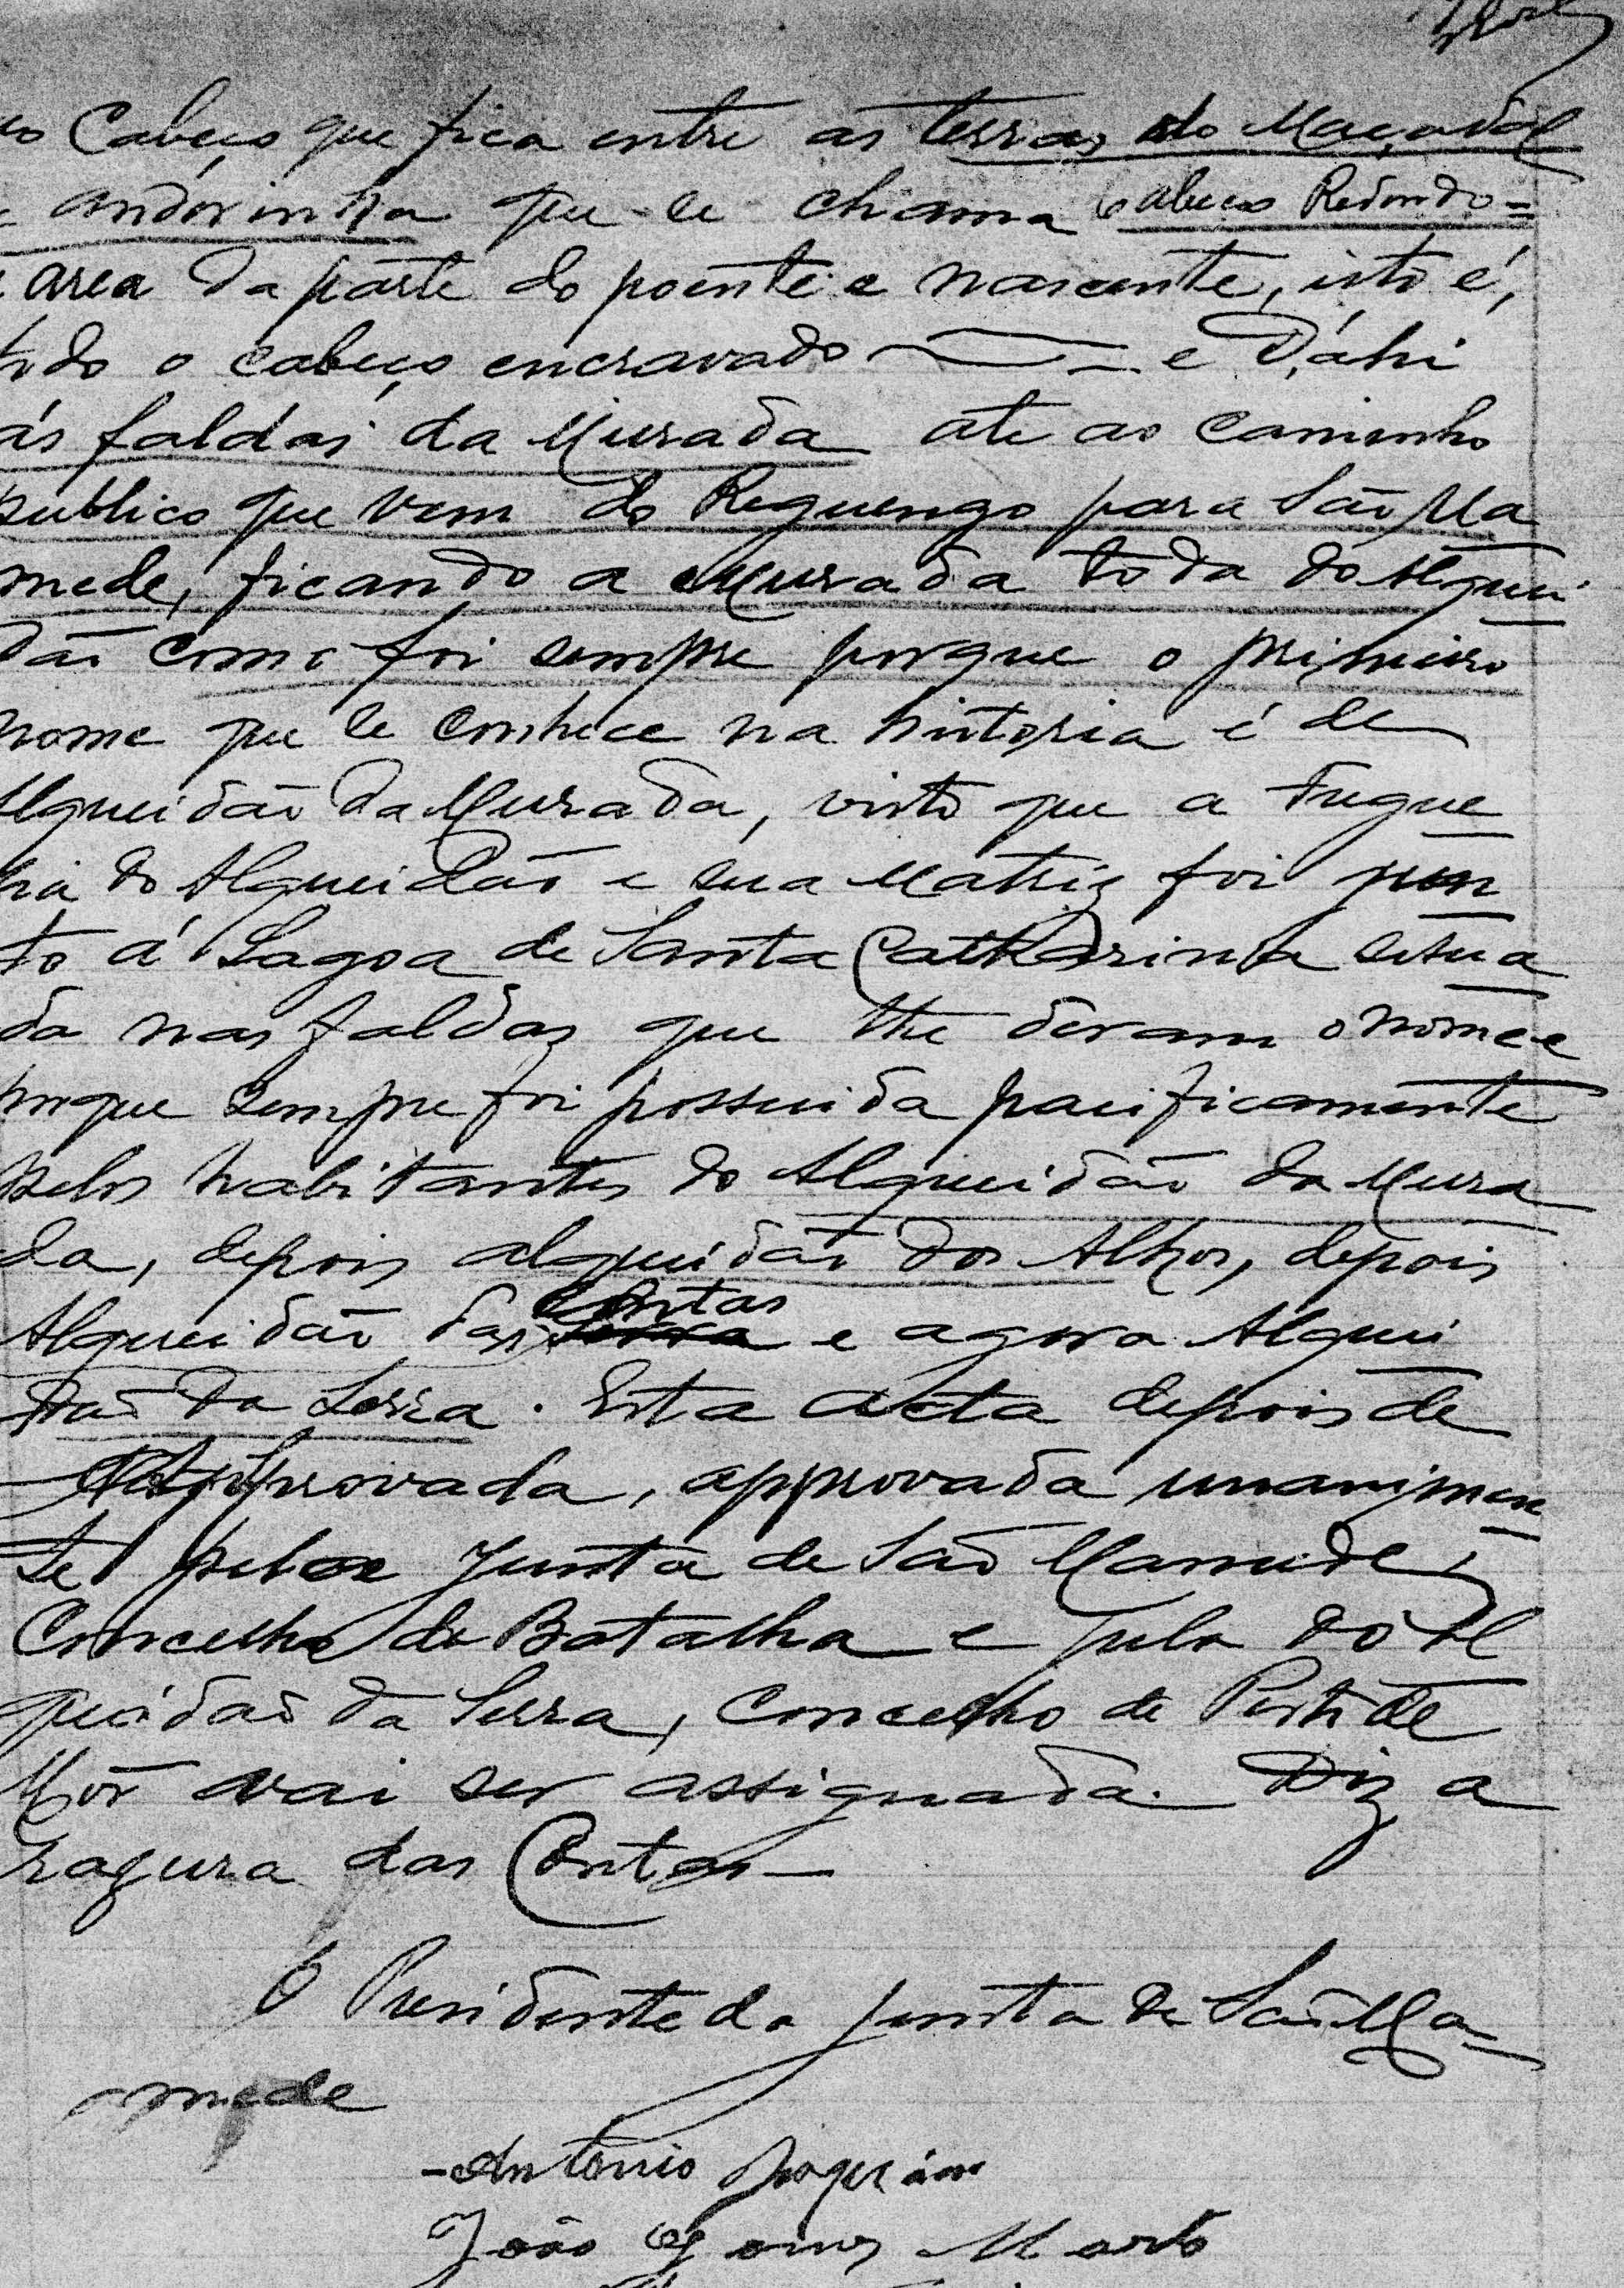 Cabeço que fica entre as terras do Maçaval
andorinha que se chama Cabeço Redondo =
area da parte do poente e nascente, isto é,
todo o cabeço encravado — e D'ahi
ás faldas da Murada até ao caminho
publico que vem do Reguengo para São Ma
mede, ficando a Murada toda do Alquei
dão como foi sempre porque o primeiro
nome que se conhece na historia é de
Alqueidão da Murada, visto que a Fregue
zia do Alqueidão e sua Matriz foi jun
to á Lagoa de Santa Catharina situa
da nas faldas que lhe deram o nome e
porque sempre foi possuida pacificamente
pelos habitantes do Alqueidão da Mura
da, depois alqueidão dos Alhos, depois
Alqueidão das Contas e agora Alquei
dão da Serra. Esta acta depois de
approvada unanimen
te pela Junta de São Mamede,
Concelho da Batalha e pela do Al
queidão da Serra, Concelho de Porto de
Mós vai ser assignada. Diz a
rasura das Contas —
O Presidente da junta de São Ma-
mede
- Antonio
João Gomes Marto